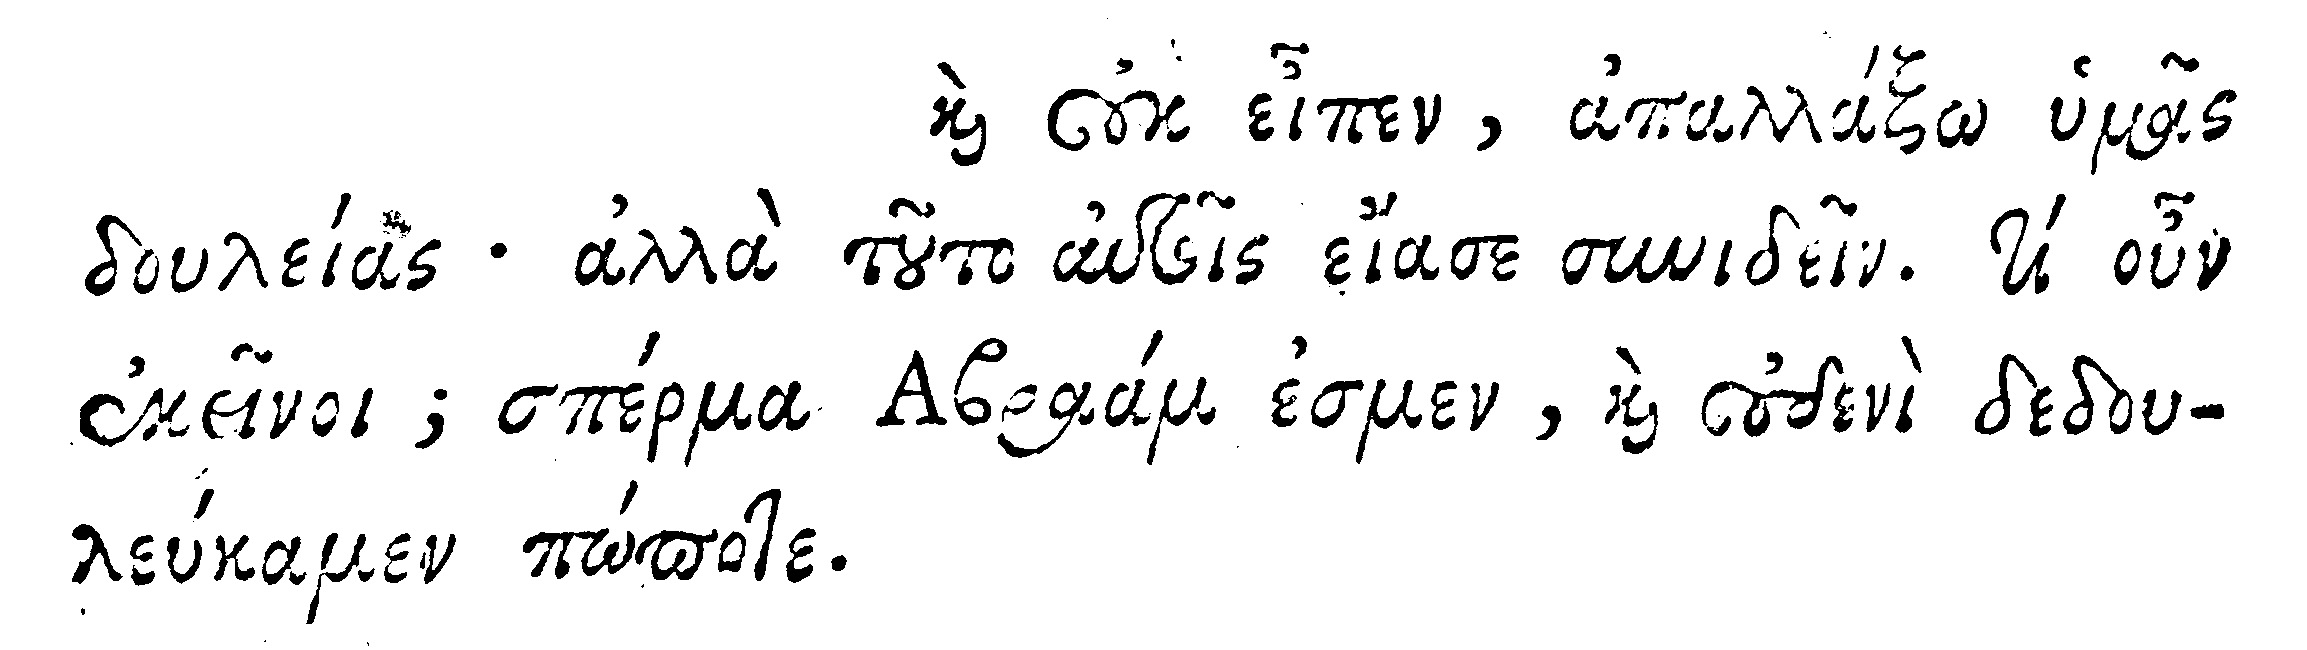 καὶ οὐκ εἶπεν, ἀπαλλάξω ὑμᾶς
δουλείας · ἀλλὰ τοῦτο αὐτοῖς εἴασε συνιδεῖν. τί οὖν
ἐκεῖνοι ; σπέρμα Αβραάμ ἐσμεν, καὶ οὐδενὶ δεδου-
λεύκαμεν πώποτε.